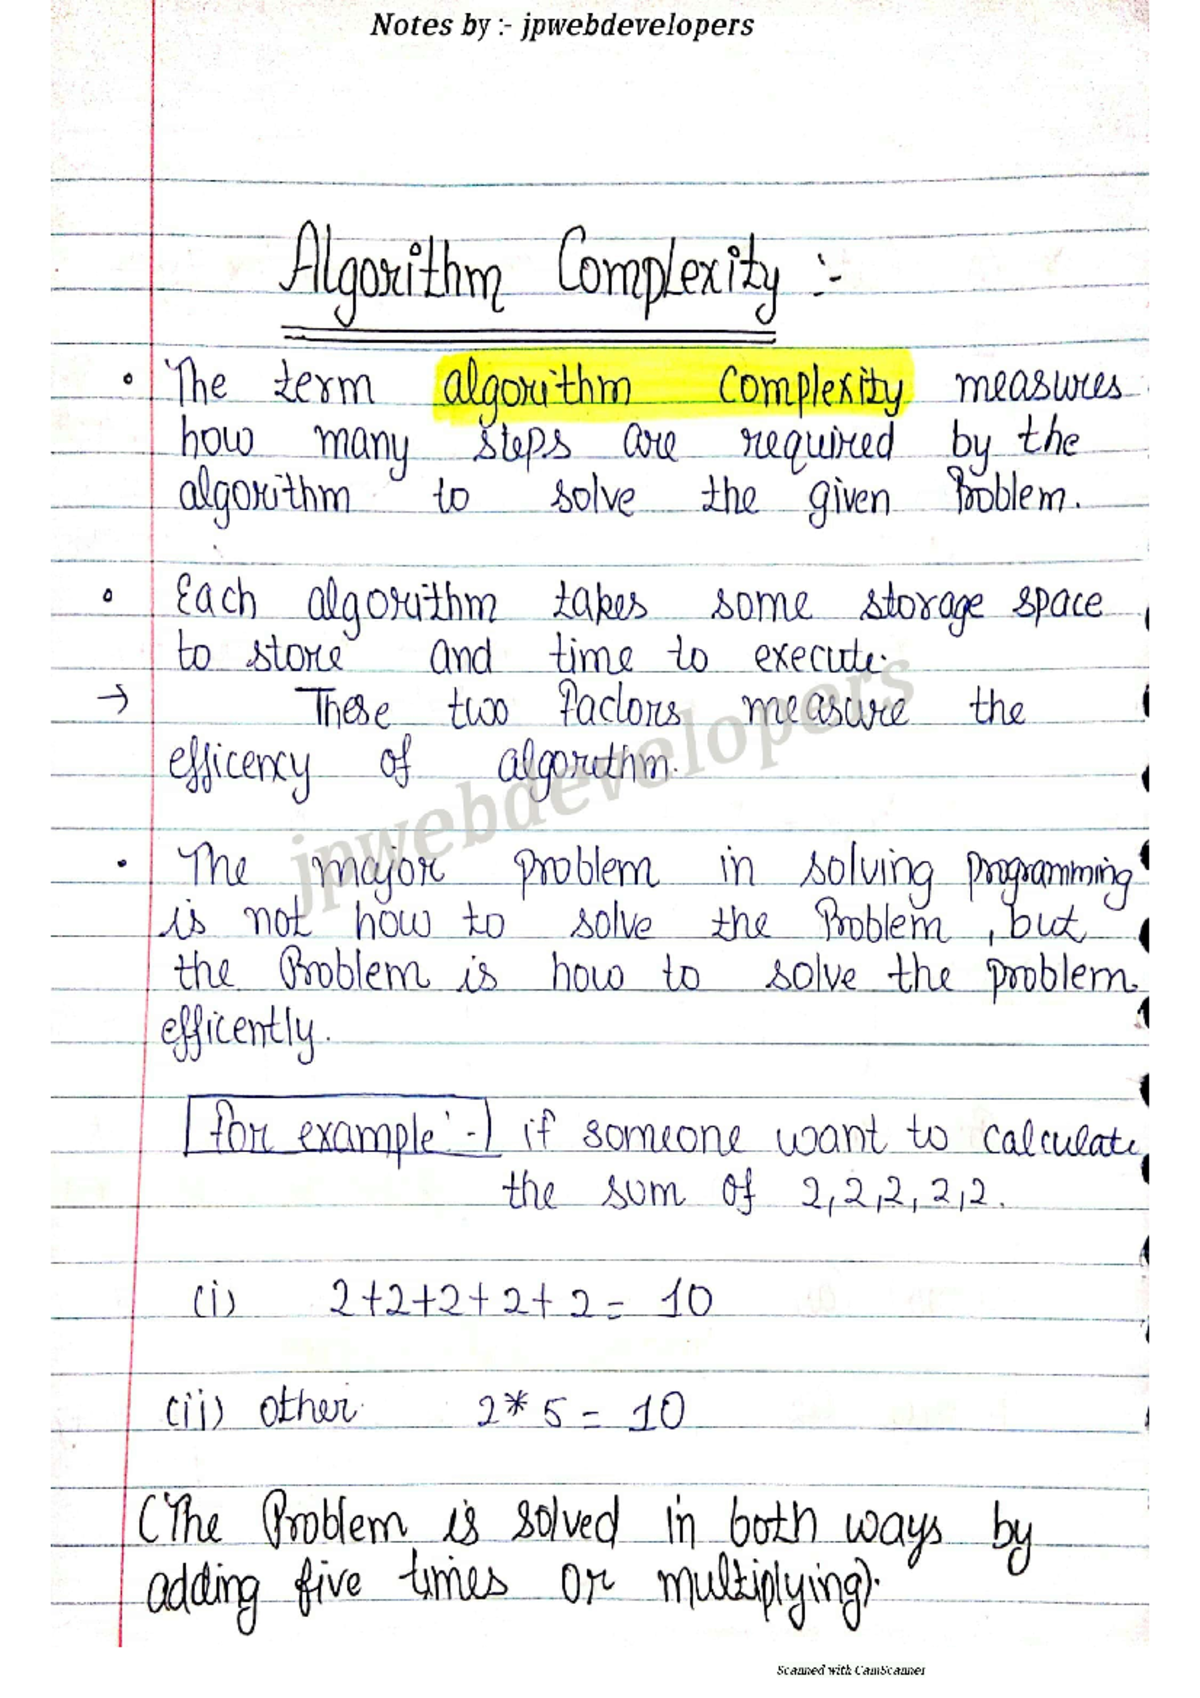 Notes by :- jpwebdevelopers
Algorithm Complexity :-
• The term algorithm Complexity measures
how many steps are required by the
algorithm to solve the given Problem.
• Each algorithm takes some storage space
to store and time to execute.
→ These two factors measure the
efficency of algorithm.
jpwebdevelopers
• The major problem in solving programming
is not how to solve the Problem, but
the Problem is how to solve the problem
efficently.
for example :- if someone want to calculate
the sum of 2,2,2,2,2.
(i) 2+2+2+2+2= 10
(ii) other 2*5=10
(The Problem is solved in both ways by
adding five times or multiplying).
Scanned with CamScanner